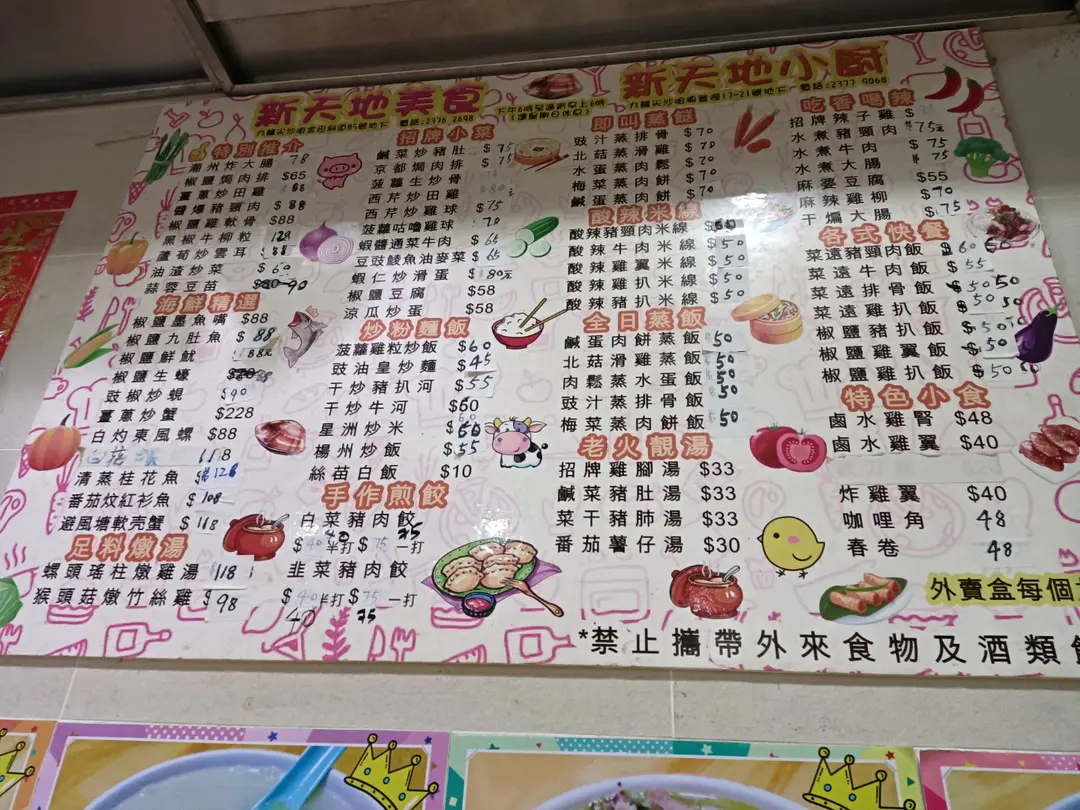 新天地美食
下午6時至凌晨早上6時
新天地小厨
電話:2376 2698
九龍尖沙咀
17-21號地下
電話:2377 9068
特別推介
潮州炸大腸 78
椒鹽焗肉排 $65
薑蔥炒田雞 88
醬爆豬頸肉 $88
椒鹽雞軟骨 $88
黑椒牛柳粒 128
蘆荀炒雲耳 $88
油渣炒菜 $60
蒜蓉豆苗 90
海鮮精選
椒鹽墨魚嘴 $88
椒鹽九肚魚 $88
椒鹽鮮魷 88元
椒鹽生蠔
豉椒炒蜆 $90
薑蔥炒蟹 $228
白灼東風螺 $88
118
清蒸桂花魚 $128
番茄炆紅衫魚 $108
避風塘軟壳蟹 $168
足料燉湯
螺頭瑤柱燉雞湯 118
猴頭菇燉竹絲雞 $98
招牌小菜
鹹菜炒豬肚 $75
京都焗肉排 $75
菠蘿生炒骨
西芹炒田雞
西芹炒雞球 $75
菠蘿咕嚕雞球 70
蝦醬通菜牛肉 $65
豆豉鯪魚油麥菜 $65
蝦仁炒滑蛋 80元
椒鹽豆腐 $58
涼瓜炒蛋 $58
炒粉麵飯
菠蘿雞粒炒飯 $60
豉油皇炒麵 $45
干炒豬扒河 $55
干炒牛河 $60
星洲炒米 $60
楊州炒飯 $55
絲苗白飯 $10
手作煎餃
白菜豬肉餃
$40半打 $75一打
韭菜豬肉餃
$40半打 $75一打
40 75
即叫蒸餸
豉汁蒸排骨 $70
北菇蒸滑雞 $70
水蛋蒸肉鬆 $70
梅菜蒸肉餅 $70
鹹蛋蒸肉餅
酸辣米線
酸辣豬頸肉米線
酸辣牛肉米線 $50
酸辣雞翼米線 $50
酸辣雞扒米線 $50
酸辣豬扒米線 $50
全日蒸飯
鹹蛋肉餅蒸飯 50
北菇滑雞蒸飯 50
肉鬆蒸水蛋飯 50
豉汁蒸排骨飯 50
梅菜蒸肉餅飯 50
老火靚湯
招牌雞腳湯 $33
鹹菜豬肚湯 $33
菜干豬肺湯 $33
番茄薯仔湯 $30
吃香喝辣
招牌辣子雞 $
水煮豬頸肉 75元
水煮牛肉 $75
水煮大腸 $75
麻婆豆腐 $55
麻辣雞柳 $70
干煸大腸 $75
各式快餐
菜遠豬頸肉飯 $60
菜遠牛肉飯 $55
菜遠排骨飯 $50
椒鹽雞扒飯 $50
椒鹽豬扒飯 $50
椒鹽雞翼飯 $50
椒鹽雞扒飯 $50
特色小食
鹵水雞腎 $48
鹵水雞翼 $40
炸雞翼 $40
咖哩角 48
春卷 48
外賣盒每個
*禁止攜帶外來食物及酒類